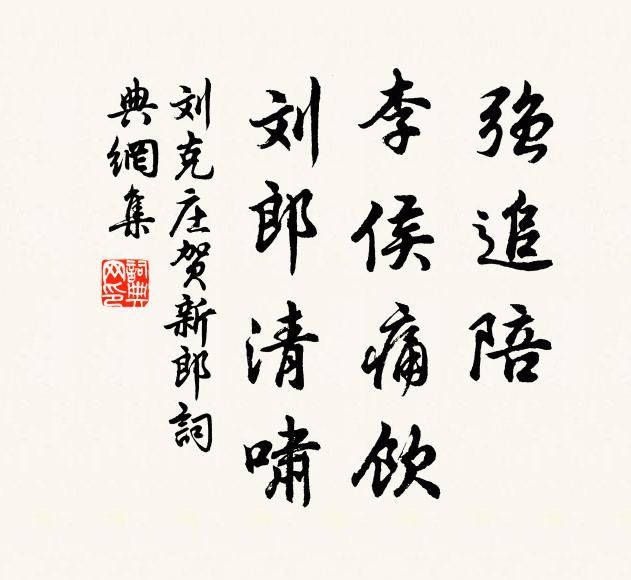 强追陪
李侯痛饮
刘郎清啸
刘克庄贺新郎词
典網集
詞典网印